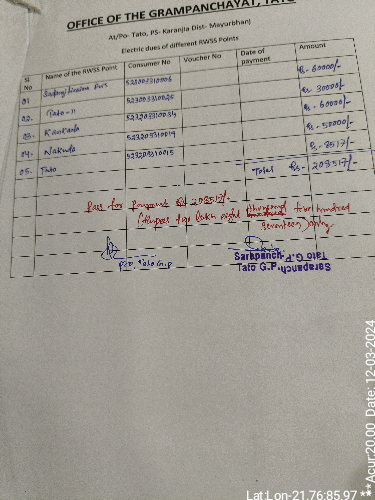 OFFICE OF THE GRAMPANCHAYAT, TATO
At/Po- Tato, PS- Karanjia Dist- Mayurbhanj
Electric dues of different RWSS Points
Sl No Name of the RWSS Point Consumer No Voucher No Date of payment Amount
01 523203310006 Rs- 60000/-
02- Tato-II Rs- 30000/-
03- Rs- 60000/-
04- Nakuda Rs- 50000/-
05- Tato 523203310015 Rs- 8517/-
Total Rs- 208517/-
Pass for payment Rs 208517/-
(Rupees two lakh eight thousand five hundred
seventeen) only
Sarapanch
Tato G.P.
Sarapanch
Tato G.P.
P.E.O. Tato G.P
Lat:Lon-21.76:85.97 ***Acur:20.00 Date: 12-03-2024